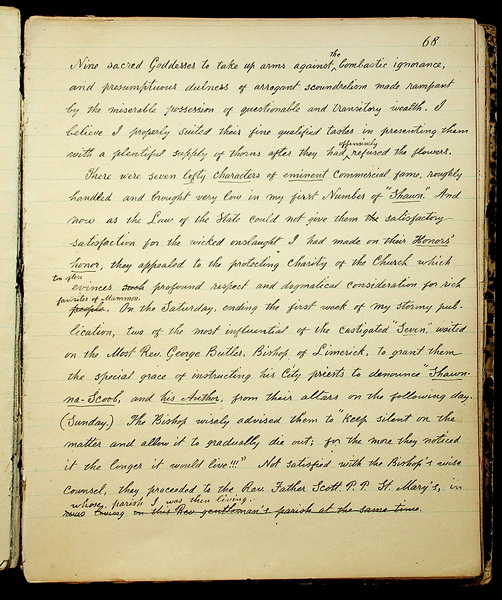 68
Nine sacred Goddesses to take up arms against the bombastic ignorance,
and presumptuous dulness of arrogant scoundrelism made rampant
by the miserable possession of questionable and transitory wealth. I
believe I properly suited their fine qualified tastes in presenting them
with a plentiful supply of thorns after they had offensively refused the flowers.
There were seven lofty characters of eminent commercial fame, roughly
handled and brought very low in my first Number of "Shawn". And
now as the Law of the State could not give them the satisfactory
satisfaction for the wicked onslaught I had made on their Honors'
honor, they appealed to the protecting Charity of the Church which
too often
evinces such profound respect and dogmatical consideration for rich
favorites of Mammon.
people. On the Saturday, ending the first week of my stormy pub-
lication, two of the most influential of the castigated "Seven" waited
on the Most Rev. George Butler, Bishop of Limerick, to grant them
the special grace of instructing his City priests to denounce "Shawn-
na-Scoob, and his Author, from their altars on the following day.
(Sunday.) The Bishop wisely advised them to "keep silent on the
matter and allow it to gradually die out, for the more they noticed
it the longer it would live!!!" Not satisfied with the Bishop's wise
counsel, they proceeded to the Rev. Father Scott P.P. St. Mary's, in
whose parish I was then living.
was living on this Rev gentleman's parish at the same time.